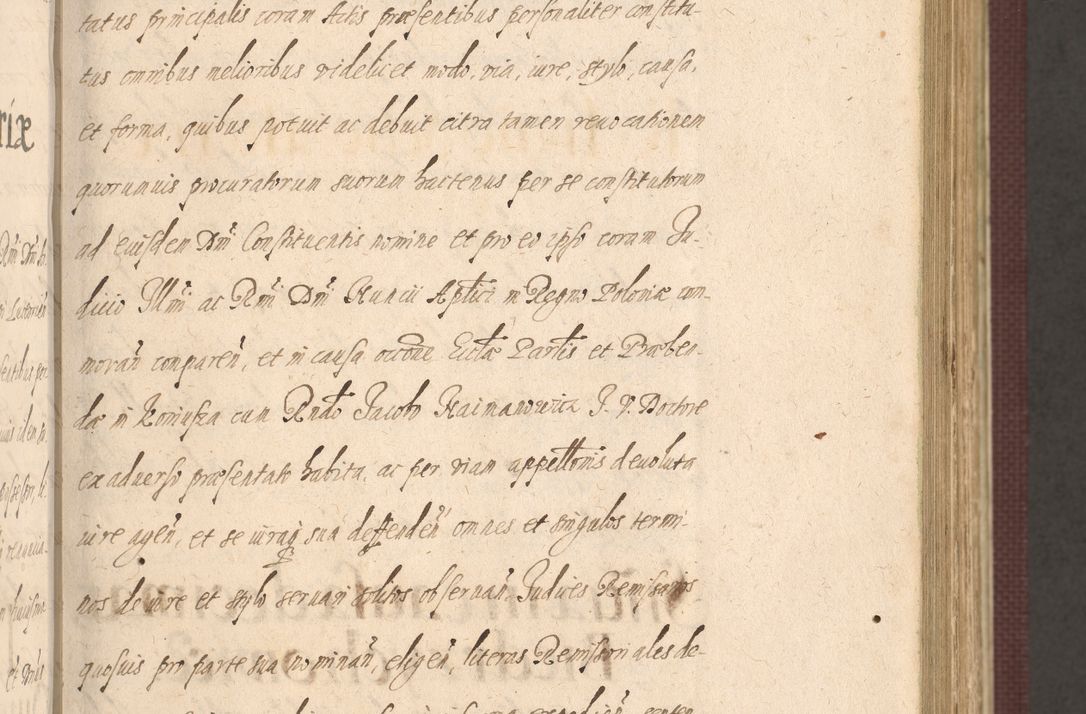 tatus principalis coram Actis præsentibus personaliter constitu-
tus omnibus melioribus videlicet modo, via, iure, stylo, causa,
et forma, quibus potuit ac debuit citra tamen revocationem
quorumvis procuratorum suorum hactenus per se constitutorum
ad Eiusdem Dni Constituentis nomine et pro eo ipso coram Ju-
dicio Illmi ac Rmi Dni Nuncii Aptici in Regno Poloniæ com-
moran comparen, et in causa occone Ecclæ Parlis et Præben-
dæ in Koniusza cum Rndo Jacobo Naimanowicz J. V. Doctore
ex adverso præsentato habita, ac per viam appellonis devoluta
iure agen, et se iuraq sua deffenden omnes et singulos termi-
nos de iure et stylo servari solitos observan, Judices Remissarios
quosvis pro parte sua nominan, eligen, literas Remissoriales de-